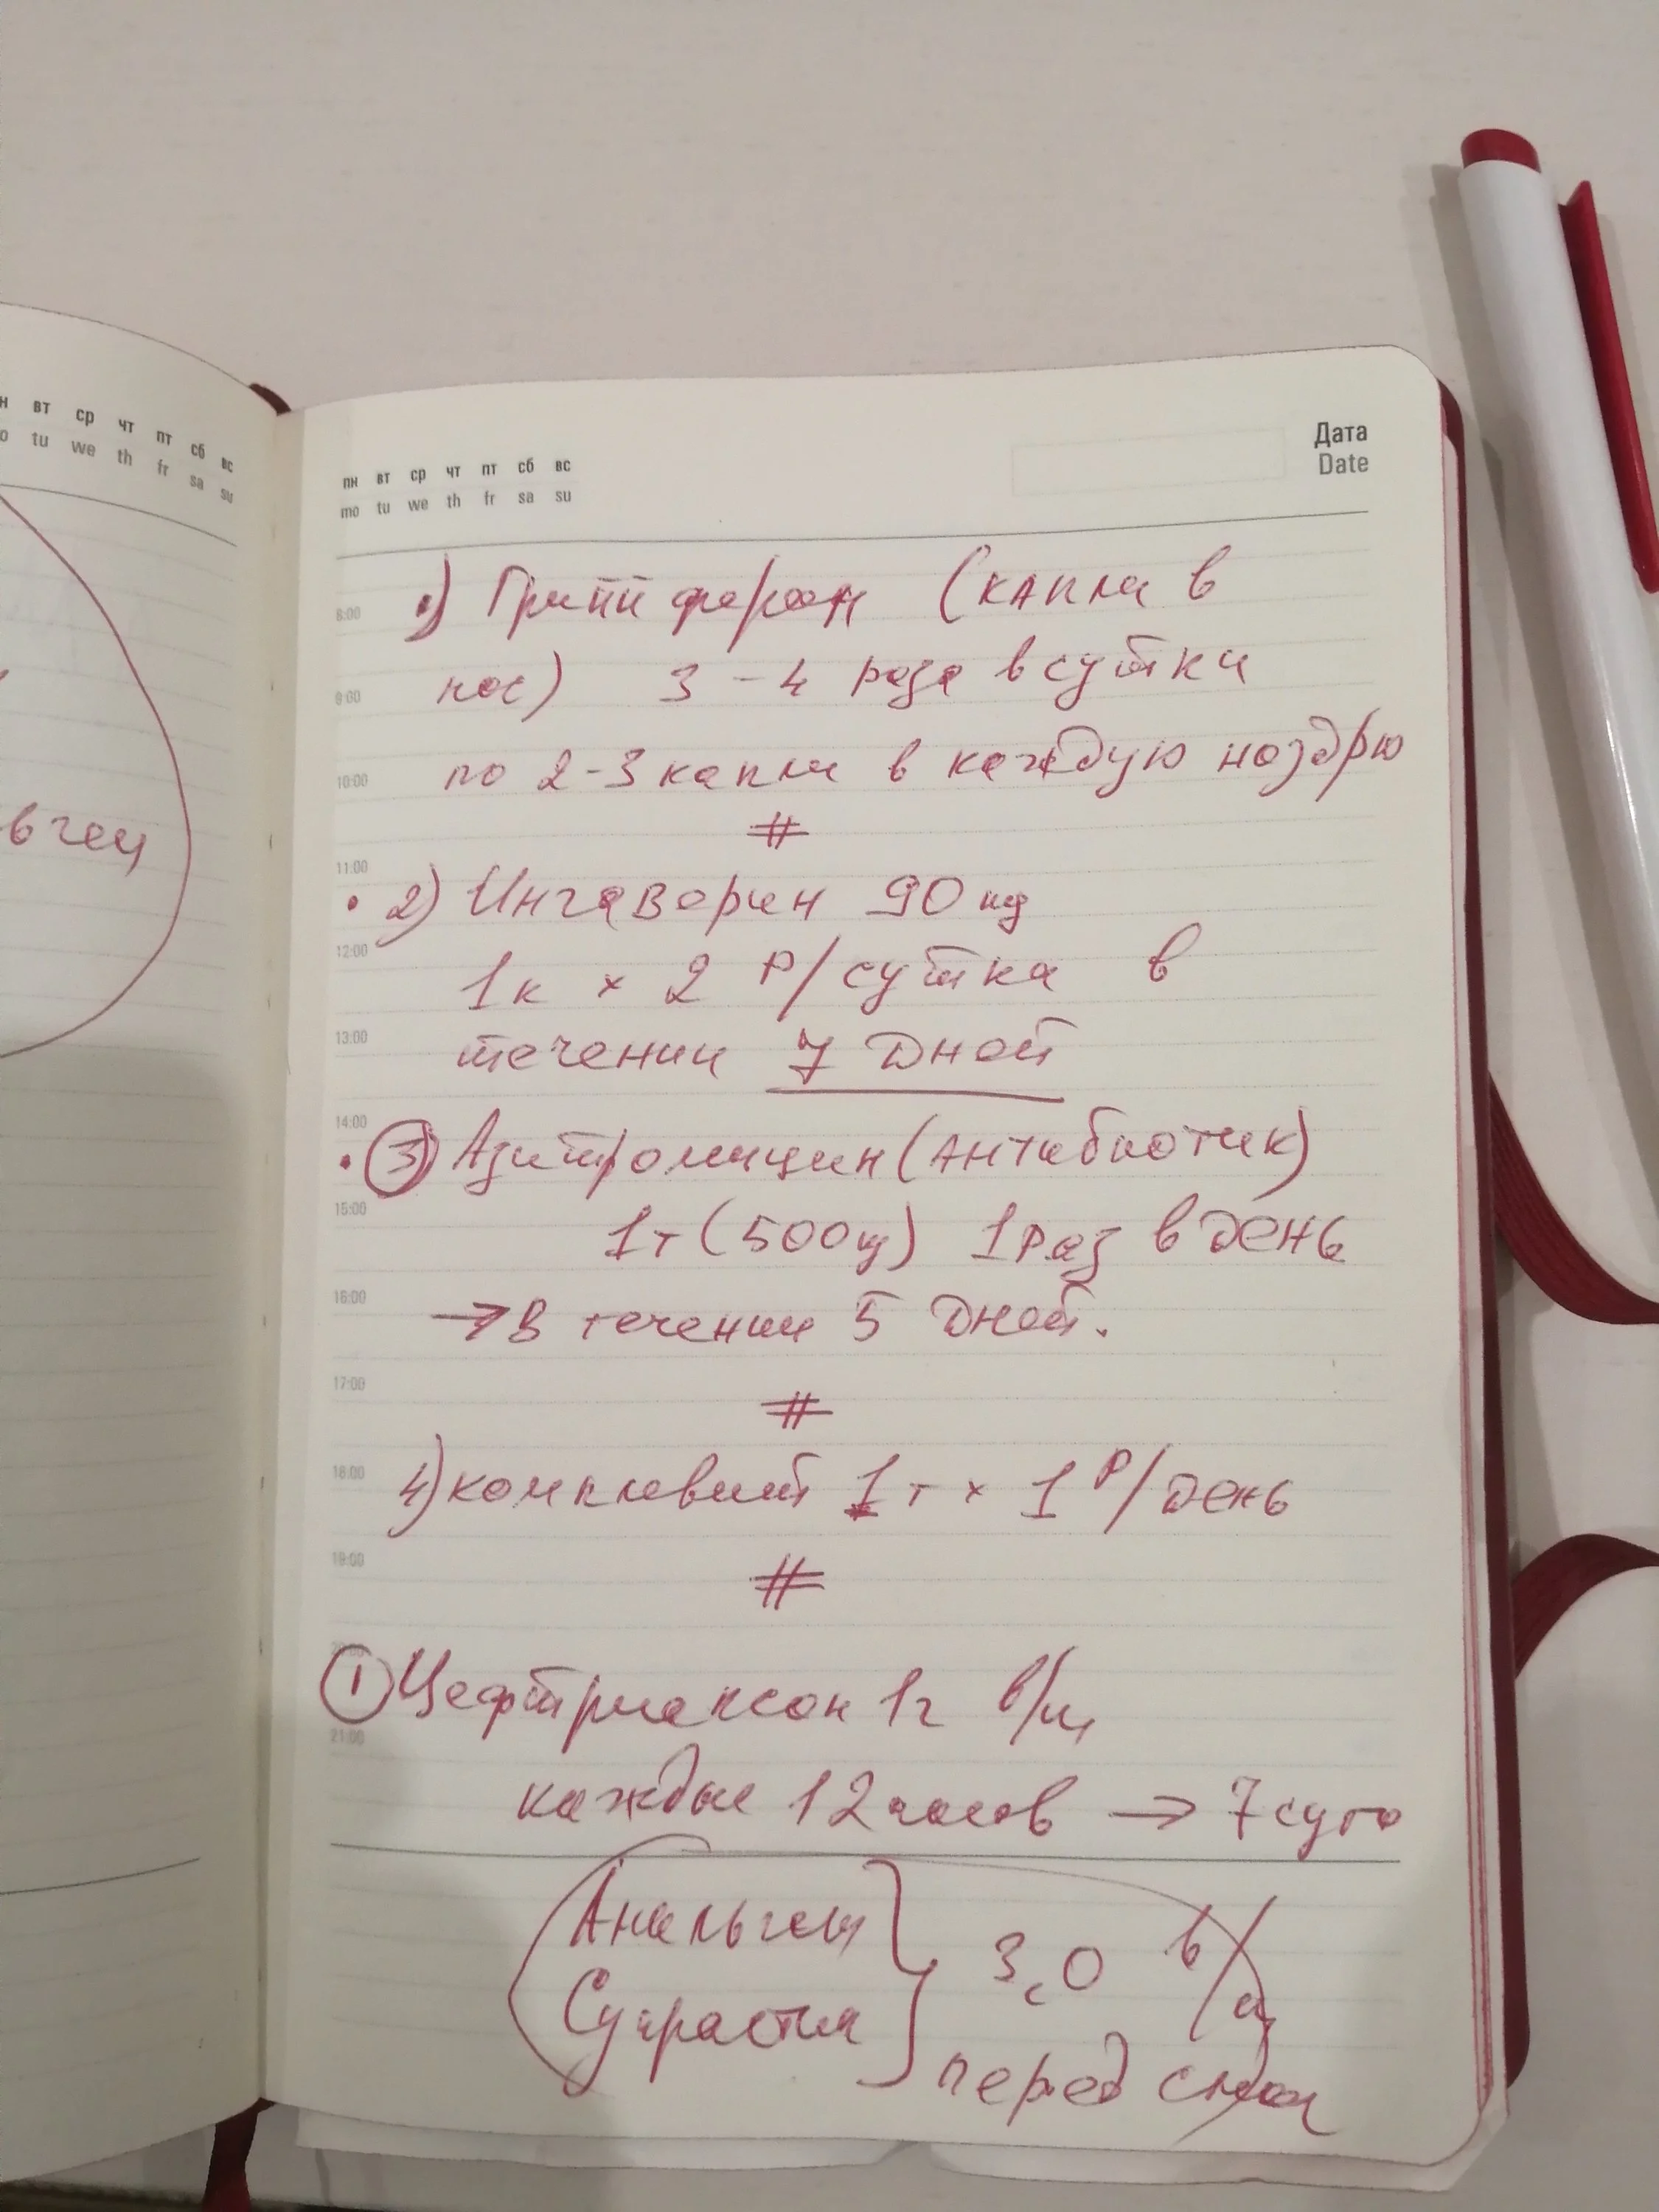 н вт ср чт пт сб вс
o tu we th fr sa su
в геч
Дата
Date
пн вт ср чт пт сб вс
mo tu we th fr sa su
1) Гриппферон (капли в
8:00
нос) 3-4 раза в сутки
9:00
по 2-3 капли в каждую ноздрю
10:00
#
11:00
• 2) Ингаверин 90 мг
12:00
1к × 2 Р/сутка в
13:00
течении 7 дней
14:00
• 3) Азитромицин (антибиотик)
15:00
1т (500мг) 1 раз в день
16:00
→ в течении 5 дней.
17:00
#
18:00
4) компливит 1т × 1 Р/день
19:00
#
① Цефтриаксон 1г в/м
21:00
каждые 12 часов → 7 суто
Анальгин
Супрастин
} 3,0 в/м
перед сном